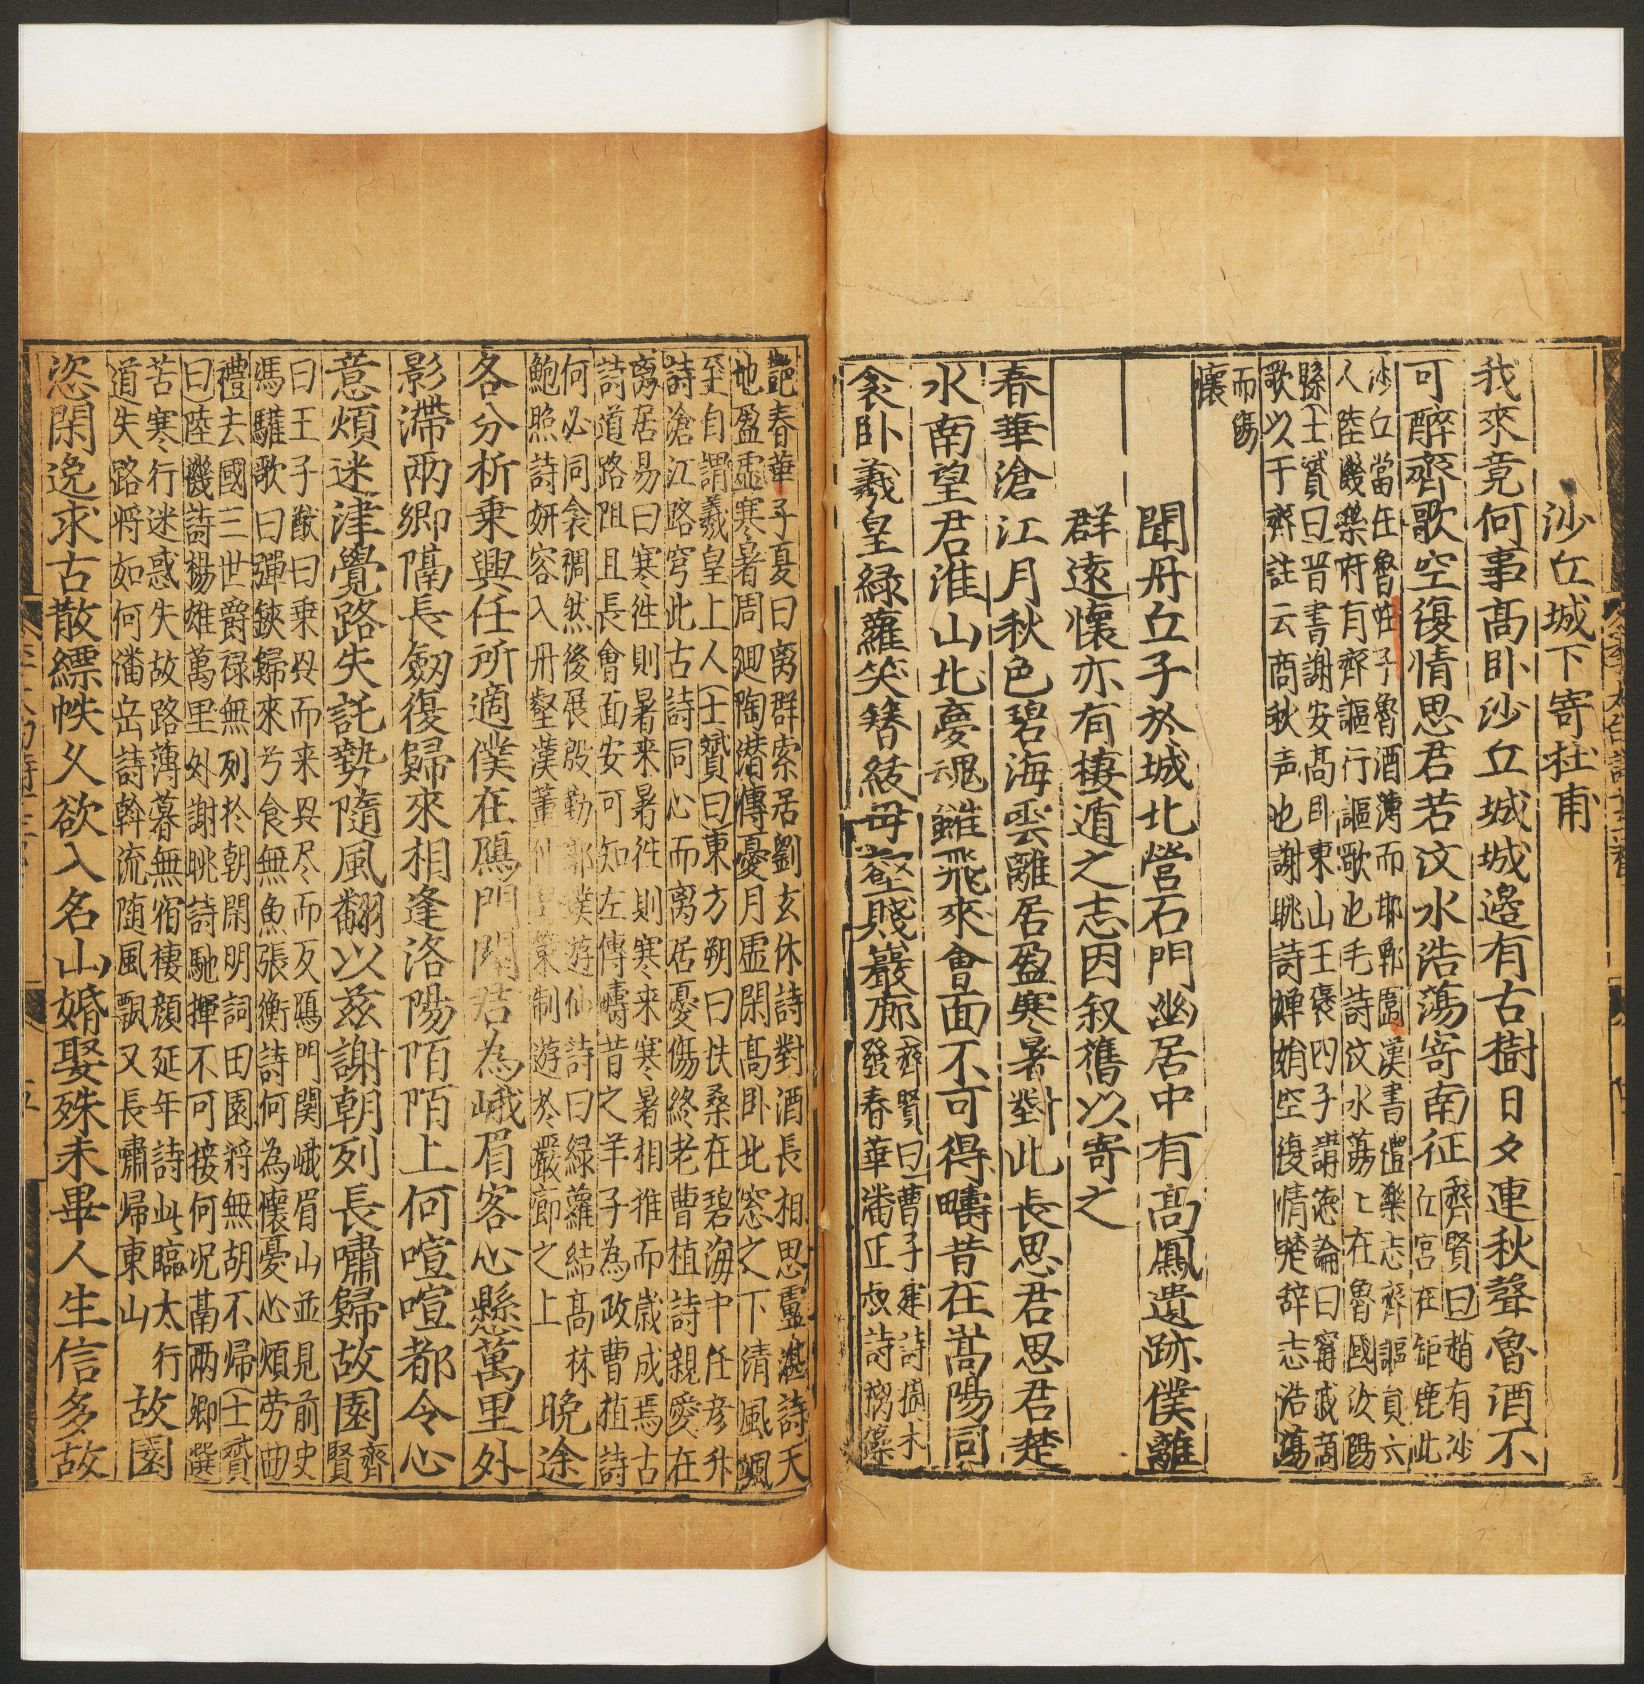 沙丘城下寄杜甫
我來竟何事高卧沙丘城城邊有古樹日夕連秋聲魯酒不
可醉齊歌空復情思君若汶水浩蕩寄南征
齊賢曰趙有沙
丘宮在鉅鹿此
沙丘當在魯
魯酒薄而邯鄲圍漢書禮樂志齊謳員六
人陸機樂府有齊謳行謳歌也毛詩汶水蕩蕩在魯國汶陽
縣士贇曰晋書謝安高卧東山王襃四子講德論曰甯戚商
歌以于齊註云商秋声也謝朓詩嬋娟空復情楚辞志浩蕩
而傷
懷
聞丹丘子於城北營石門幽居中有高鳳遺跡僕離
群遠懷亦有棲遁之志因叙舊以寄之
春華滄江月秋色碧海雲離居盈寒暑對此長思君思君楚
水南望君淮山北夢魂雖飛來會面不可得疇昔在嵩陽同
衾卧羲皇綠蘿笑簪紱丹壑賤巖廊
齊賢曰曹子建詩摛木
發春華潘正叔詩摛藻
艶春華子夏曰离群索居劉玄休詩對酒長相思盧諶詩天
地盈虚寒暑周迴陶潜傳憂月虚閑高卧北窓之下清風颯
至自謂羲皇上人士贇曰東方朔曰扶桑在碧海中任彦升
詩滄江路穷此古詩同心而离居憂傷終老曹植詩親愛在
离居易曰寒徃則暑来暑徃則寒来寒暑相推而歳成焉古
詩道路阻且長會面安可知左傳疇昔之羊子為政曹植詩
何必同衾裯然後展殷勤郭璞遊仙詩曰緑蘿結高林
鮑照詩妍容入丹壑漢董仲舒策制遊於巖廊之上
晩途
各分析乗興任所適僕在鴈門關君為峨眉客心懸萬里外
影滯兩鄉隔長劔復歸來相逢洛陽陌陌上何喧喧都令心
意煩迷津覺路失託勢隨風翻以兹謝朝列長嘯歸故園
齊
賢
曰王子猷曰乗㒷而来㒷尽而反鴈門関峨眉山並見前史
馮驩歌曰彈鋏歸來兮食無魚張衡詩何為懷憂心煩勞西
禮去國三世爵禄無列於朝閑明詞田園将無胡不帰士贇
曰陸機詩楊雄萬里外謝眺詩馳揮不可接何况鬲兩卿選
苦寒行迷惑失故路薄暮無宿棲顔延年詩此臨太行
道失路将如何潘岳詩斡流随風飄又長嘯帰東山
故園
恣閑逸求古散縹帙乆欲入名山婚娶殊未畢人生信多故